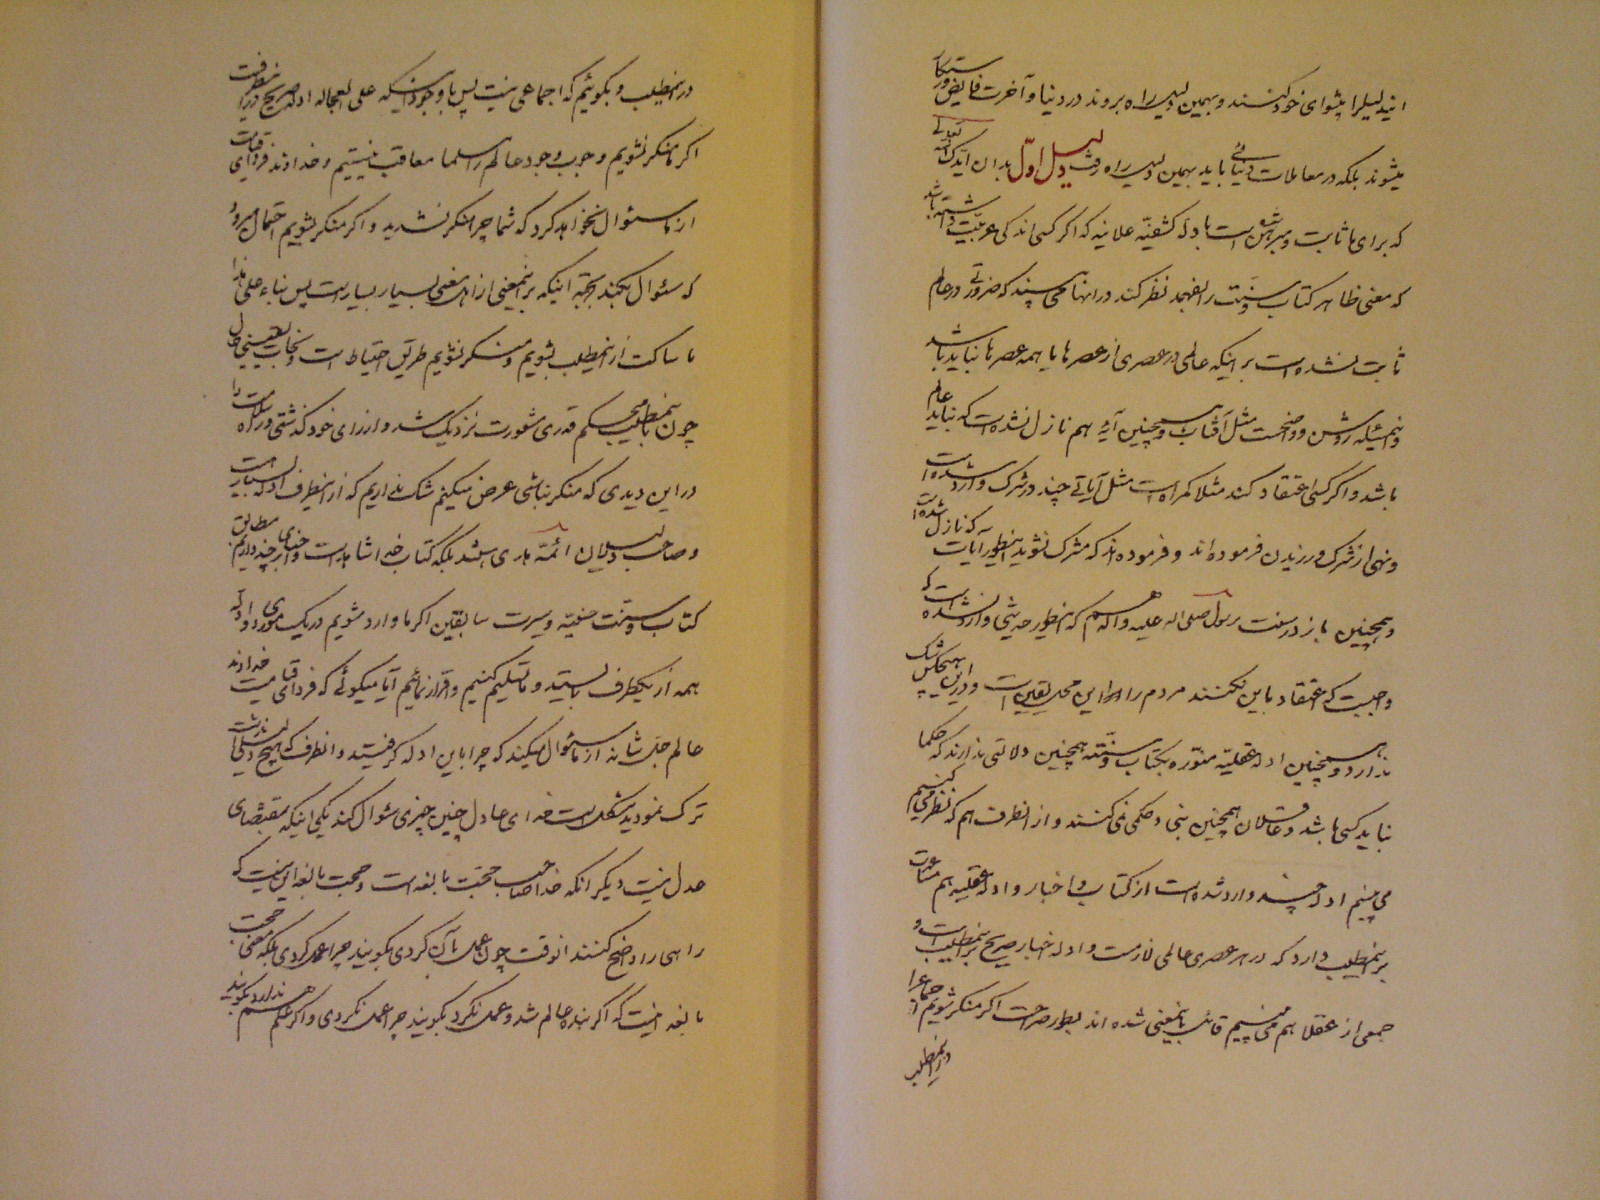 این دلیل را پیشوای خود کنند و بهمین دلیل راه بروند در دنیا و آخرت فایض و رستگار
میشوند بلکه در معاملات دنیائی باید بهمین دلیل راه رفت دلیل اول بدان ایدک الله تعالی
که برای ما ثابت و مبرهن شده است بادله کشفیه علانیه که اگر کسی اندکی عربیت داشته باشد
که معنی ظاهر کتاب و سنت را بفهمد نظر کند در اینها می بیند که ضرورتی در عالم
ثابت نشده است بر اینکه عالمی در عصری از عصرها یا همه عصرها نباید باشد
و این مسئله روشن و واضحست مثل آفتاب و همچنین آیه هم نازل نشده است که نباید عالم
باشد و اگر کسی اعتقاد کند مثلا گمراه است مثل آیاتی چند در شرک وارد شده است
و نهی از شرک ورزیدن فرموده اند و فرموده اند که مشرک نشوید اینطور آیات که نازل شده است
و همچنین باز در سنت رسول صلی اله علیه و اله هم که اینطور حدیثی وارد نشده است که
واجبست که اعتقاد باین نکنند مردم را این محل یقین است و در این هیچکس شک
ندارد و همچنین ادله عقلیه منوره بکتاب و سنت همچنین دلالتی ندارند که حکما
نباید کسی باشد و عاقلان همچنین بنی و حکمی نمی کنند و از انطرف هم که نظر می کنیم
می بینیم ادله چند وارد شده است از کتاب و اخبار و ادله عقلیه هم
بر اینمطلب دارد که در هر عصری عالمی لازمست و ادله اخبار صریح بر اینمطلب است و
جمعی از عقلا هم می بینیم قائل باینمعنی شده اند بطور صراحت اگر منکر شویم اجماع را
در اینمطلب
در اینمطلب و بگوئیم که اجماعی نیست پس با وجود اینکه علی العجاله ادله صریح در اینطرفست
اگر ما منکر نشویم وجوب وجود عالم را مسلما معاقب نیستیم و خداوند فردای قیامت
از ما سئوال نخواهد کرد که شما چرا منکر نشدید و اگر منکر بشویم احتمال میرود
که سئوال بکند بجهة اینکه بر اینمعنی از اهل معنی بسیار بسیار است پس بناء علی هذا
ما ساکت از اینمطلب بشویم و منکر نشویم طریق احتیاط است و نجات
چون باینمطلب محکم قدری شعورت نزدیک شد و از رای خود گذشتی و راه سلامت را
در این دیدی که منکر نباشی عرض میکنم شک نداریم که از اینطرف ادله بسیار است
و صاحب دلیلان ائمه هدی هستند بلکه کتاب خدا شاهد است و اخباری چند داریم مطابق
کتاب و سنت حنفیه و سیرت سابقین اگر ما وارد شویم در یک موردی و ادله
همه از یکطرف بایستند و ما تسلیم کنیم و اقرار نمائیم آیا میگوئی که فردای قیامت خداوند
عالم جل شانه از ما سئوال میکند که چرا باین ادله گرفتید و انطرف که هیچ دلیلی نداشت
ترک نمودید مشکل است خدای عادل چنین چیزی سئوال کند یکی اینکه بمقتضای
عدل نیست دیگر انکه خدا صاحب حجت بالغه است و حجت بالغه این نیست که
راهی را واضح کنند انوقت چون عمل بآن کردی بگویند چرا عمل کردی بلکه معنی حجت
بالغه اینست که اگر بنده عالم شد و عمل نکرد بگویند چرا عمل نکردی و اگر علم هم ندارد بگویند